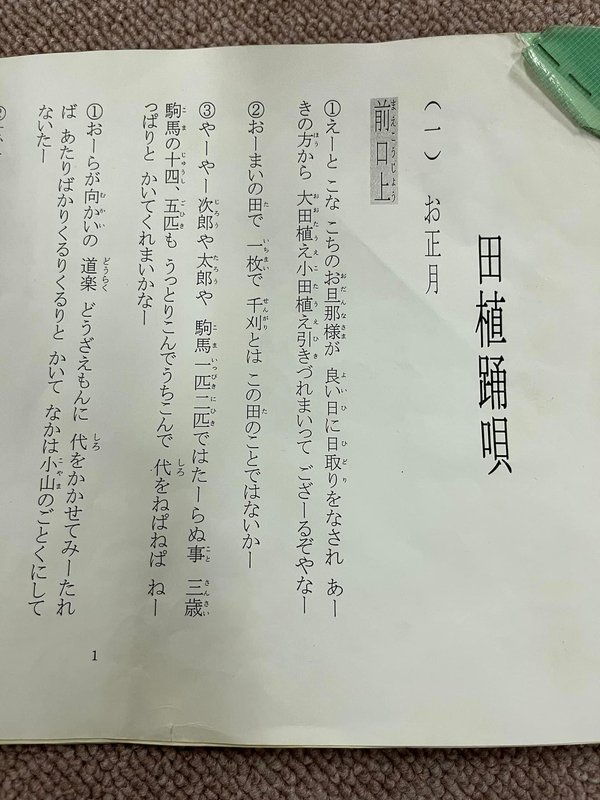 田植踊唄
（一）　お正月
前口上
①えーと こな こちのお旦那様が 良い日に日取りをなされ あー
きの方から 大田植え小田植え引きづれまいって ござーるぞやなー
②おーまいの田で 一枚で 千刈とは この田のことではないかー
③やーやー次郎や太郎や 駒馬一匹二匹ではたーらぬ事 三歳
駒馬の十四、五匹も うっとりこんでうちこんで 代をねぱねぱ ねー
っぱりと かいてくれまいかなー
①おーらが向かいの 道楽 どうざえもんに 代をかかせてみーたれ
ば あたりばかりくるりくるりと かいて なかは小山のごとくにして
ないたー
1